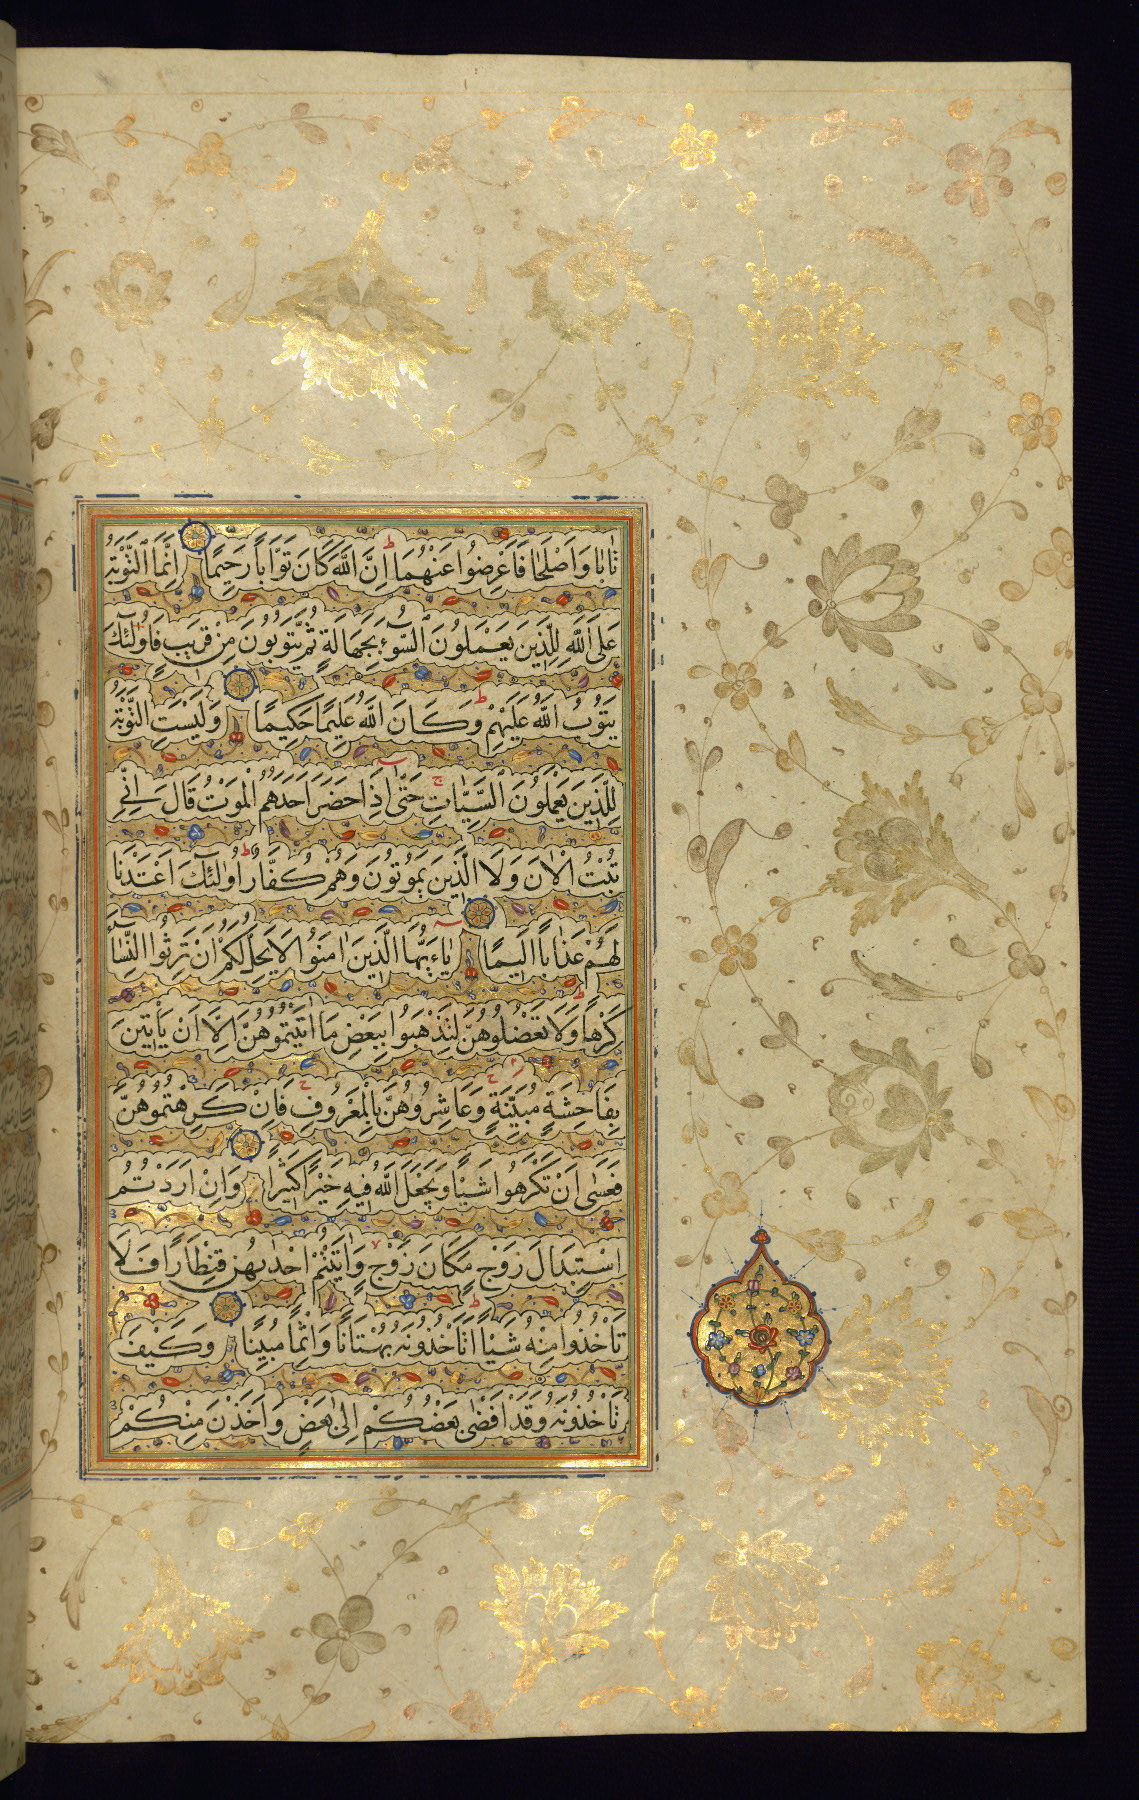 تَابَا وَاَصْلَحَا فَاَعْرِضُوا عَنْهُمَا ط اِنَّ اللّٰهَ كَانَ تَوَّابًا رَحِيمًا اِنَّمَا التَّوْبَةُ
عَلَى اللّٰهِ لِلَّذِينَ يَعْمَلُونَ السُّوٓءَ بِجَهَالَةٍ ثُمَّ يَتُوبُونَ مِنْ قَرِيبٍ فَاُولٰٓئِكَ
يَتُوبُ اللّٰهُ عَلَيْهِمْ ط وَكَانَ اللّٰهُ عَلِيمًا حَكِيمًا وَلَيْسَتِ التَّوْبَةُ
لِلَّذِينَ يَعْمَلُونَ السَّيِّاٰتِ ج حَتّٰٓى اِذَا حَضَرَ اَحَدَهُمُ الْمَوْتُ قَالَ اِنِّي
تُبْتُ الْاٰنَ وَلَا الَّذِينَ يَمُوتُونَ وَهُمْ كُفَّارٌ ط اُولٰٓئِكَ اَعْتَدْنَا
لَهُمْ عَذَابًا اَلِيمًا يَاءَيُّهَا الَّذِينَ اٰمَنُوا لَا يَحِلُّ لَكُمْ اَنْ تَرِثُوا النِّسَآءَ
كَرْهًا ط وَلَا تَعْضُلُوهُنَّ لِتَذْهَبُوا بِبَعْضِ مَا اٰتَيْتُمُوهُنَّ اِلَّا اَنْ يَأْتِينَ
بِفَاحِشَةٍ مُبَيِّنَةٍ ج وَعَاشِرُوهُنَّ بِالْمَعْرُوفِ ج فَاِنْ كَرِهْتُمُوهُنَّ
فَعَسٰٓى اَنْ تَكْرَهُوا شَيْـًٔا وَيَجْعَلَ اللّٰهُ فِيهِ خَيْرًا كَثِيرًا وَاِنْ اَرَدْتُمُ
اسْتِبْدَالَ زَوْجٍ مَكَانَ زَوْجٍ وَاٰتَيْتُمْ اِحْدٰيهُنَّ قِنْطَارًا فَلَا
تَأْخُذُوا مِنْهُ شَيْـًٔا ط اَتَأْخُذُونَهُ بُهْتَانًا وَاِثْمًا مُبِينًا وَكَيْفَ
تَأْخُذُونَهُ وَقَدْ اَفْضٰى بَعْضُكُمْ اِلٰى بَعْضٍ وَاَخَذْنَ مِنْكُمْ